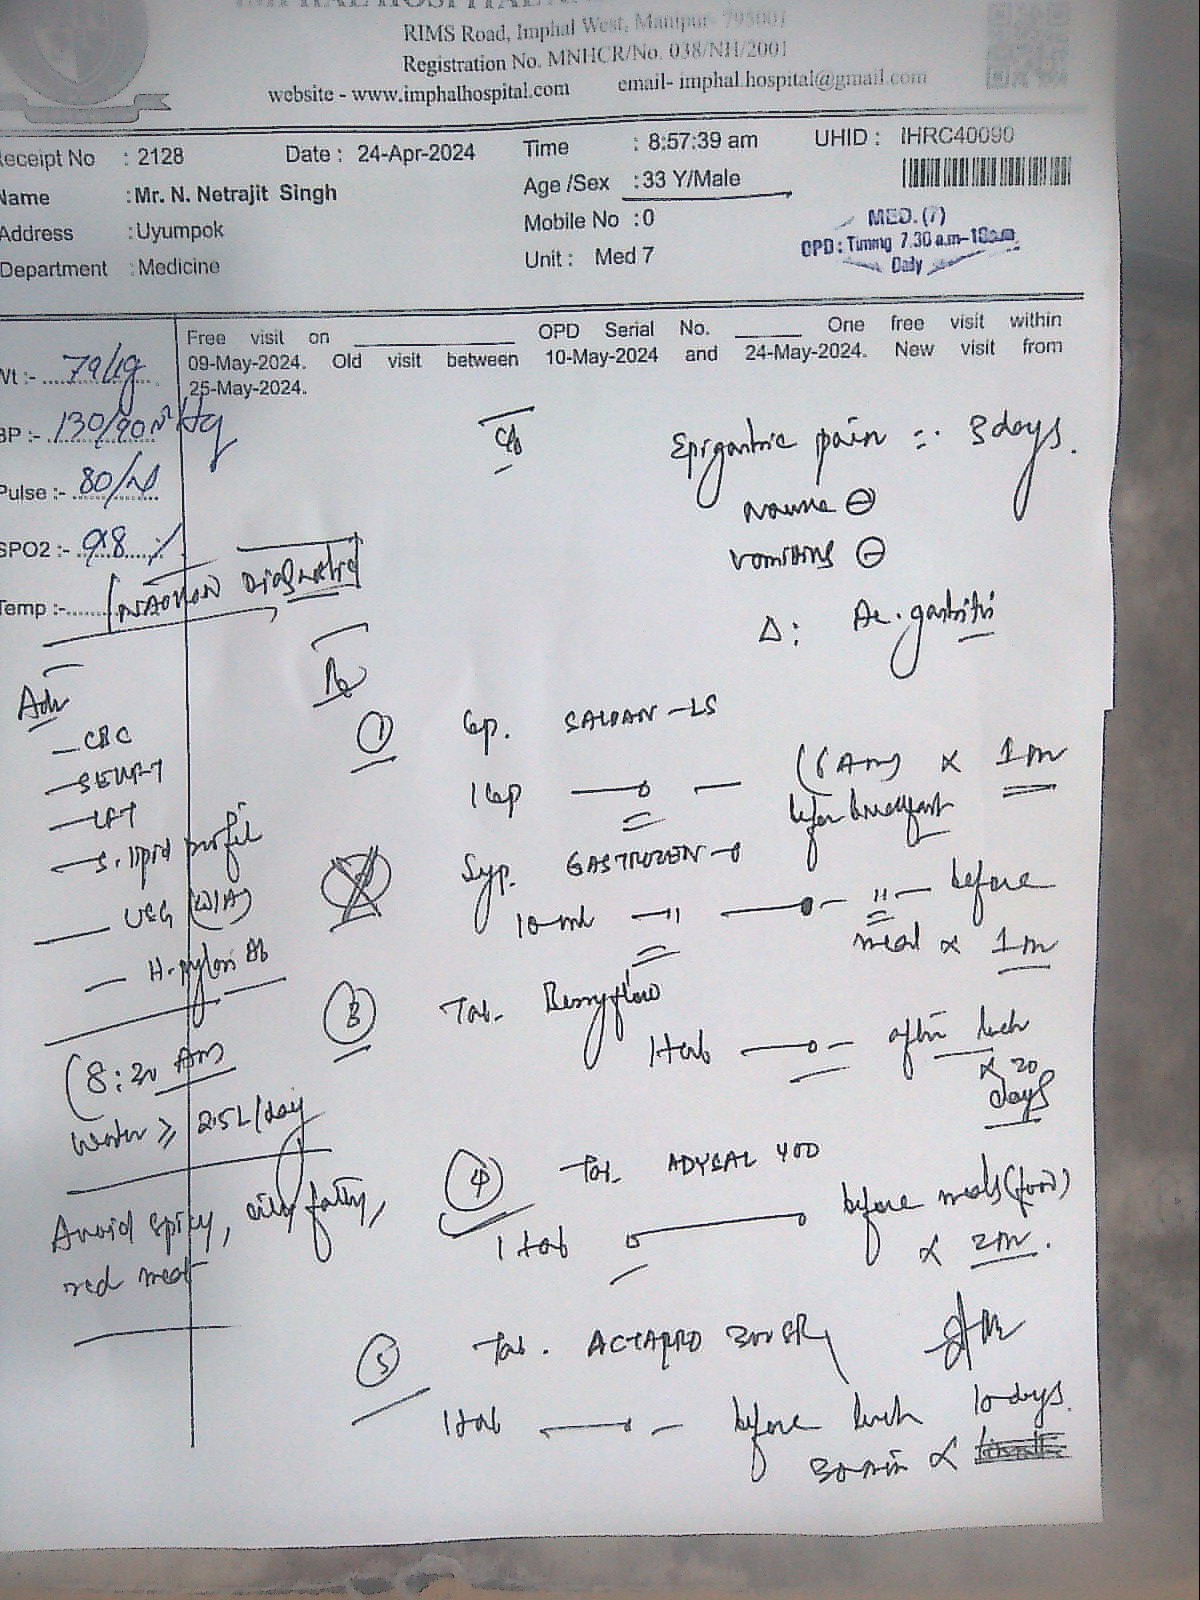 RIMS Road, Imphal West, Manipur- 795001
Registration No. MNHCR/No. 038/NH/2001
website - www.imphalhospital.com email- imphal.hospital@gmail.com
eceipt No : 2128 Date : 24-Apr-2024 Time : 8:57:39 am UHID : IHRC40090
Name : Mr. N. Netrajit Singh Age /Sex : 33 Y/Male
Address : Uyumpok Mobile No : 0
Department : Medicine Unit : Med 7
MED. (7)
OPD : Timing 7.30 a.m-10a.m
Daily
Free visit on OPD Serial No. One free visit within
09-May-2024. Old visit between 10-May-2024 and 24-May-2024. New visit from
25-May-2024.
Wt :- 79kg
BP :- 130/90
Pulse :- 80
SPO2 :- 98 %
Temp :-
c/o Epigastric pain 3 days.
nausea ⊖
vomiting ⊖
Δ: Ac. gastritis
Adv
- CBC
- LFT
- s. lipid profile
USG (W/A)
- H. pylori Ab
(8:20 Am
water ≥ 2.5L/day
Avoid spicy, oily, fatty,
red meat
Rx
① Cap. -LS
1 cap (6 Am) x 1m
before breakfast
② Syp. GASTROZEN-O
10 ml before
meal x 1m
③ Tab.
1 tab after lunch
x 20
days
④ Tab. ADYSAL 400
1 tab before meals (food)
x 2m.
⑤ Tab. ACTAPRO 300 SR
1 tab before lunch 10 days.
30 min x